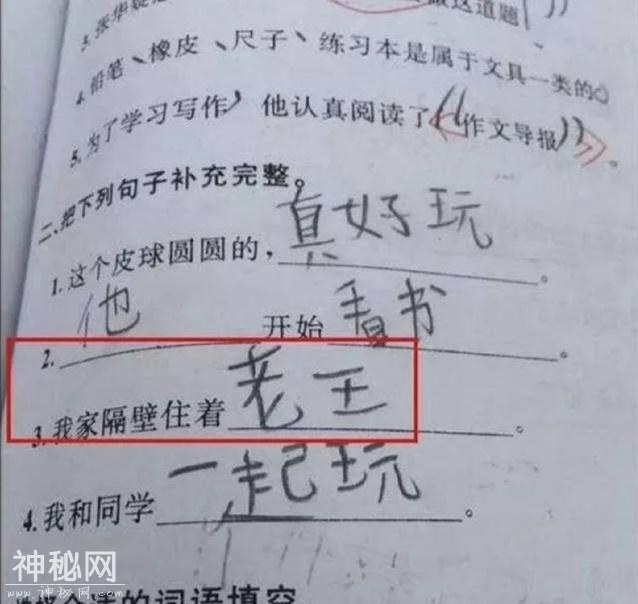 3. 张华
做这道题
4. 铅笔、橡皮、尺子、练习本是属于文具一类的。
5. 为了学习写作,他认真阅读了《作文导报》。
二、把下列句子补充完整。
1. 这个皮球圆圆的,真好玩。
2. 他开始看书。
3. 我家隔壁住着老王。
4. 我和同学一起玩。
的词语填空
神秘网
www.神秘网.com